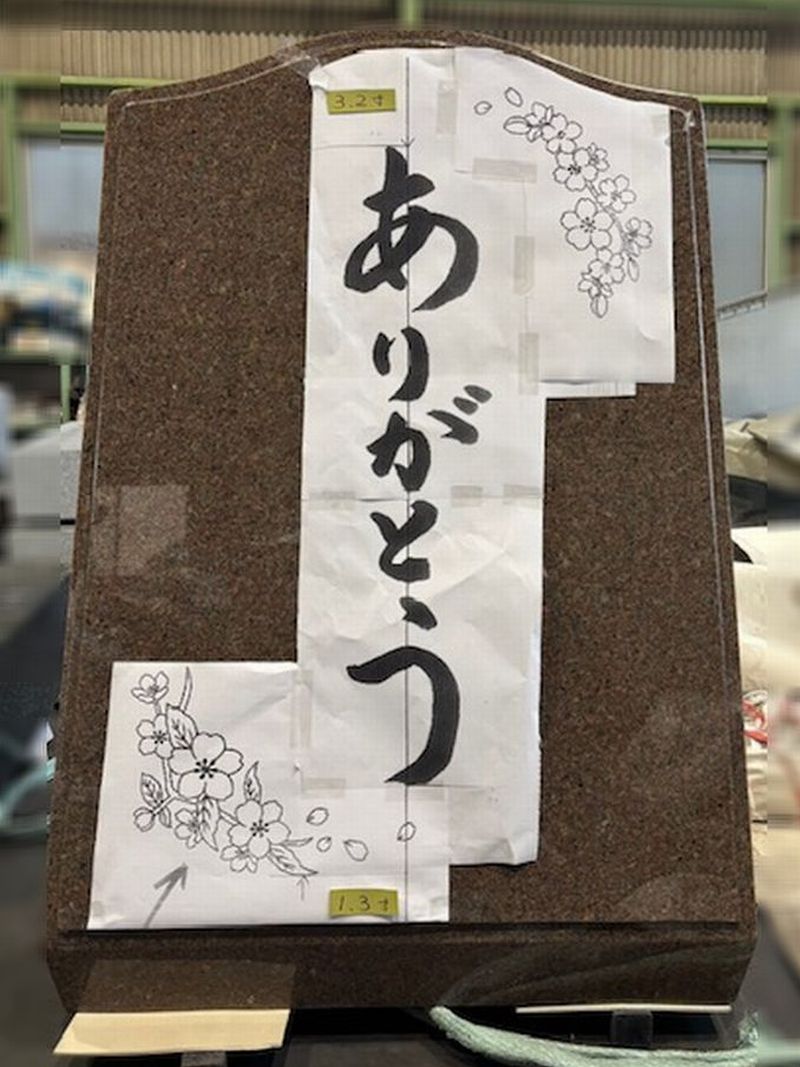 3.2寸
ありがとう
1.3寸